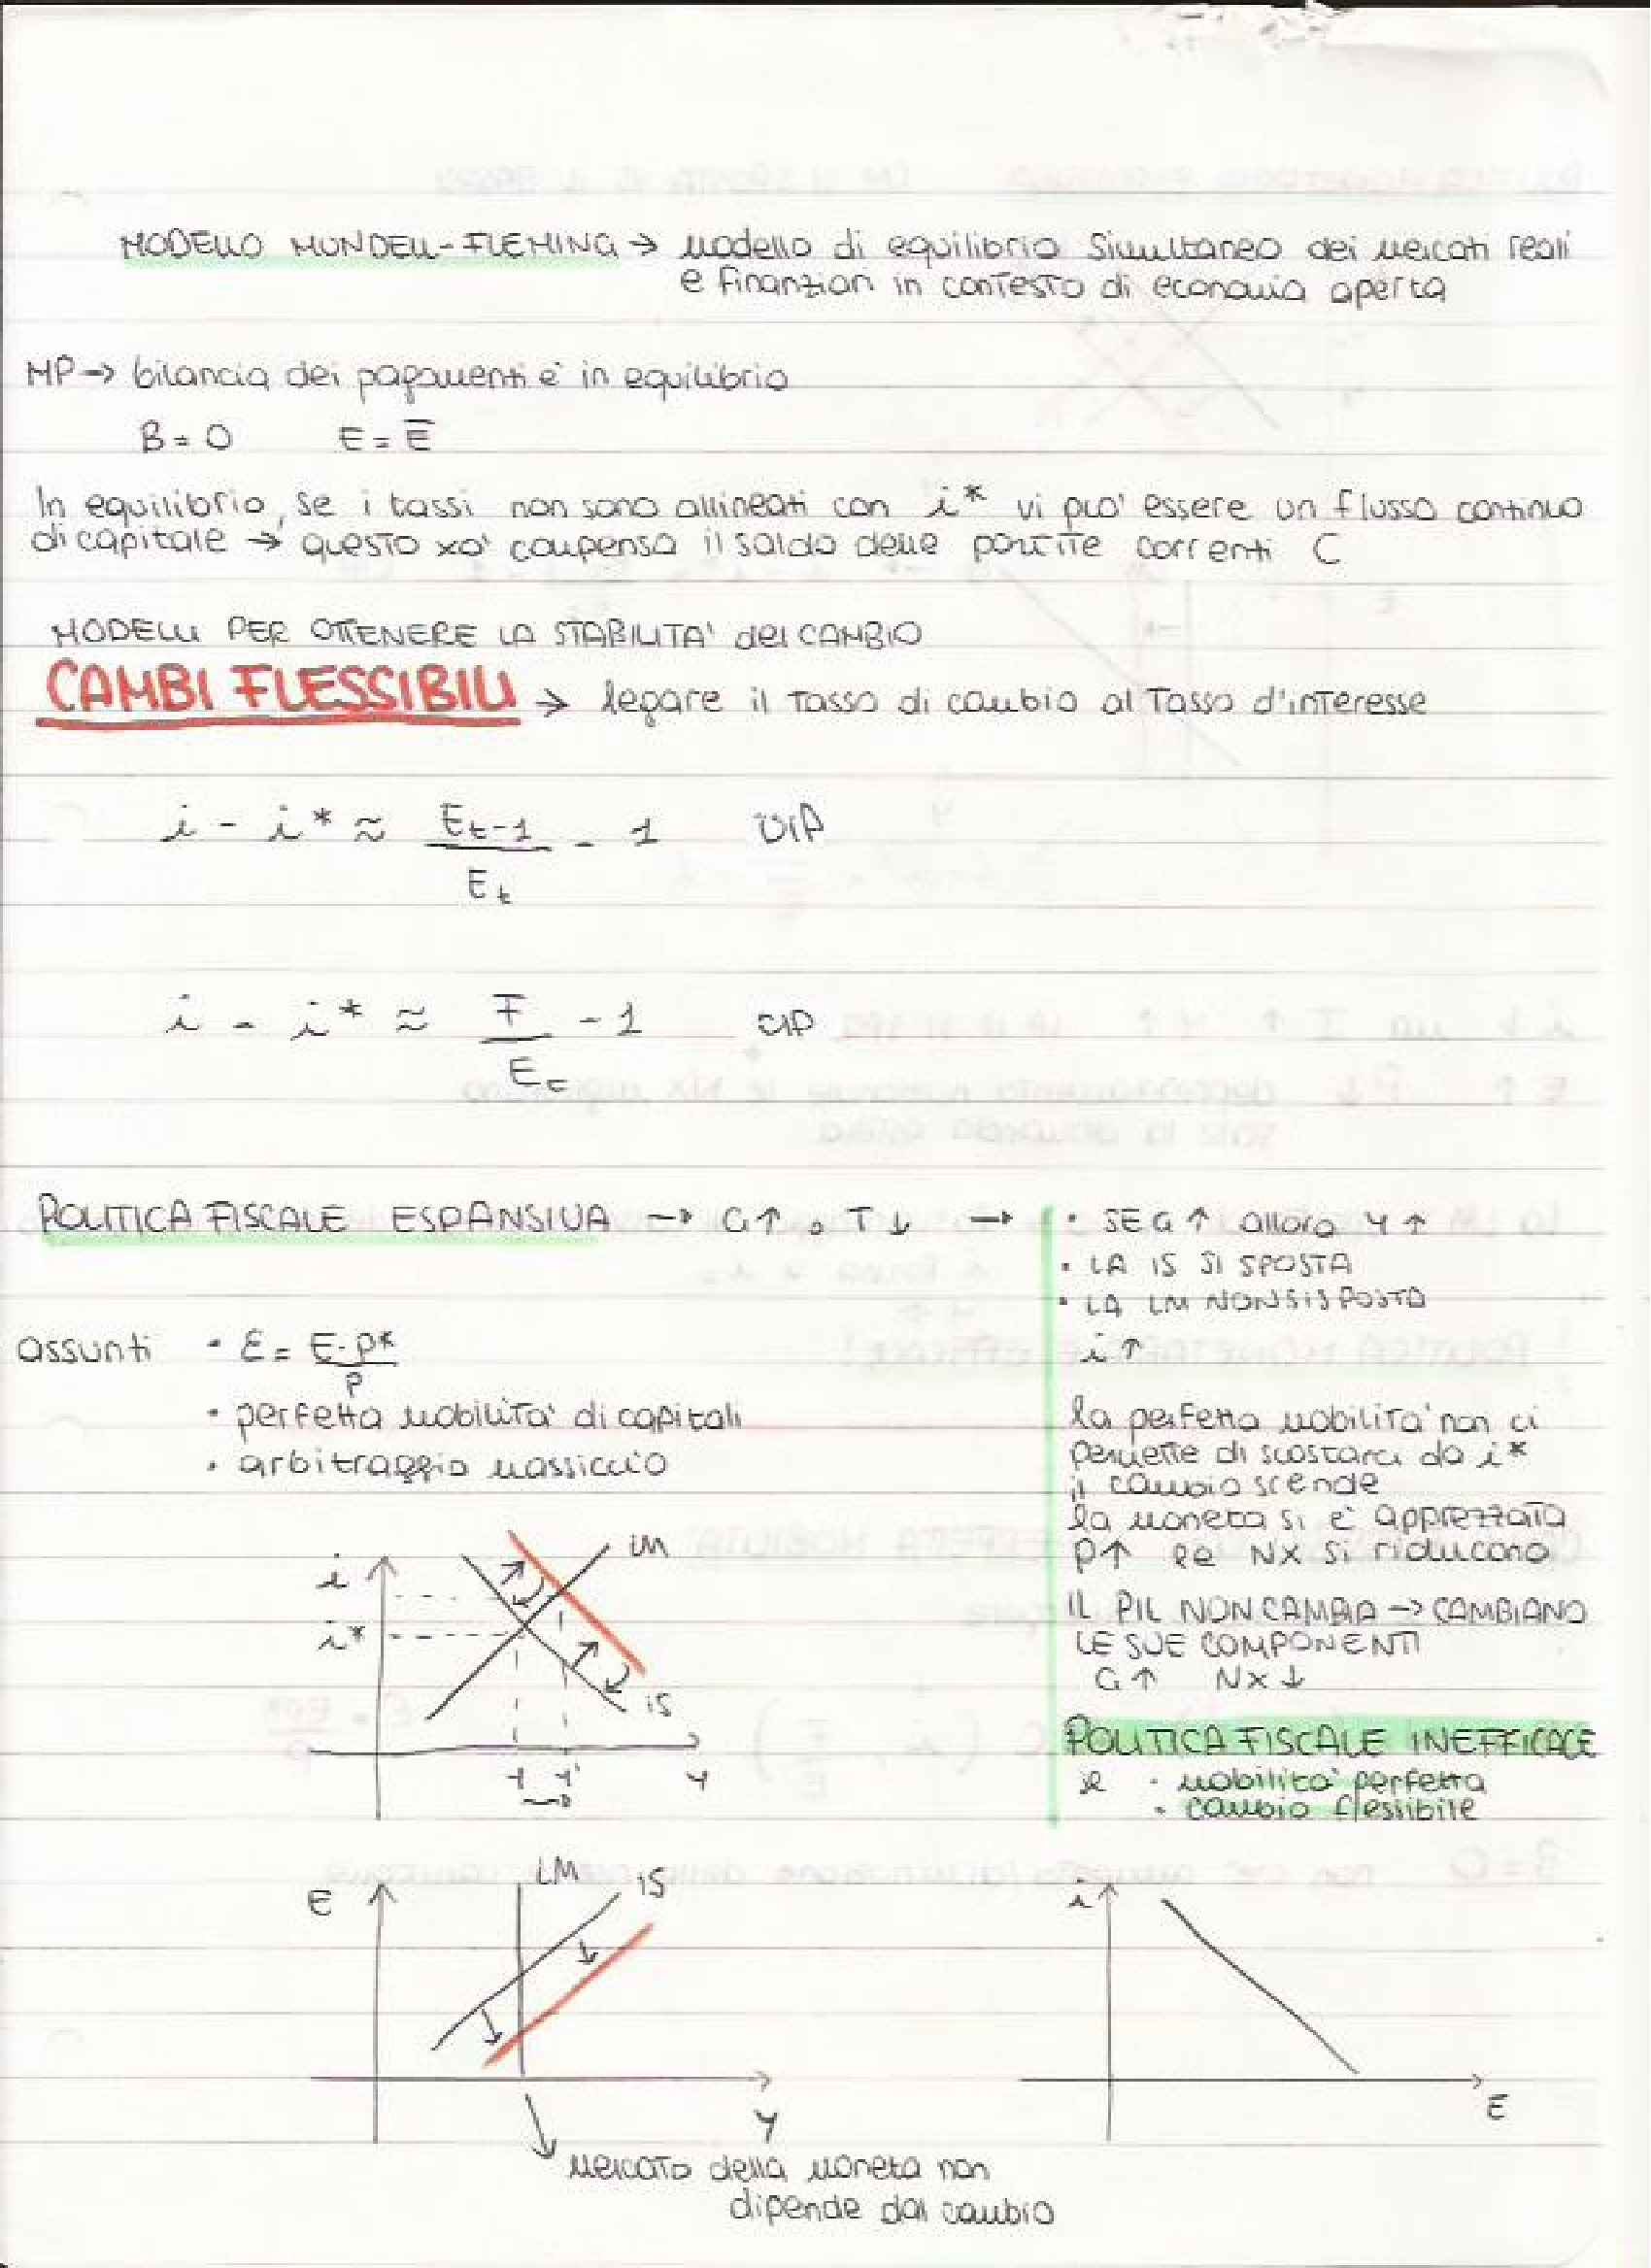 MODELLO MUNDELL-FLEMING → modello di equilibrio simultaneo dei mercati reali
e finanziari in contesto di economia aperta
HP → bilancia dei pagamenti è in equilibrio
B = 0 E = E̅
In equilibrio, se i tassi non sono allineati con i* vi può essere un flusso continuo
di capitale → questo xò compensa il saldo delle partite correnti C
MODELLI PER OTTENERE LA STABILITA' del CAMBIO
CAMBI FLESSIBILI → legare il tasso di cambio al tasso d'interesse
i - i* ≈ Et-1 / Et - 1 UIP
i - i* ≈ F / Et - 1 CIP
POLITICA FISCALE ESPANSIVA → G↑ o T↓ →
• SE G↑ allora Y↑
• LA IS SI SPOSTA
• LA LM NON SI SPOSTA
i↑
la perfetta mobilità non ci
permette di scostarci da i*
il cambio scende
la moneta si è apprezzata
P↑ le NX si riducono
IL PIL NON CAMBIA → CAMBIANO
LE SUE COMPONENTI
G↑ NX↓
POLITICA FISCALE INEFFICACE
se • mobilità perfetta
• cambio flessibile
assunti • ε = E·P* / P
• perfetta mobilità di capitali
• arbitraggio massiccio
i
i*
LM
IS
Y Y' Y
E
LM
IS
Y
mercato della moneta non
dipende dal cambio
i
E